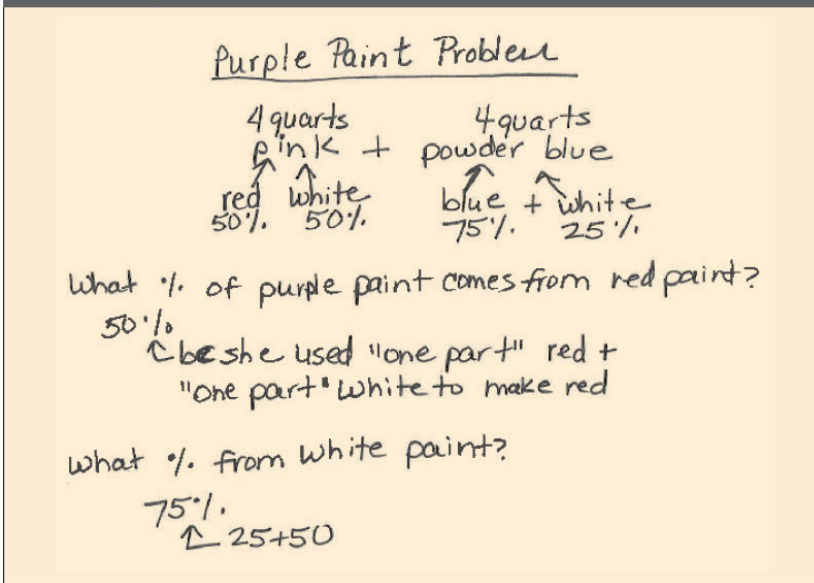 Purple Paint Problem
4 quarts 4 quarts
pink + powder blue
red white blue + white
50% 50% 75% 25%
What % of purple paint comes from red paint?
50%
bc she used "one part" red +
"one part" white to make red
What % from white paint?
75%
25+50